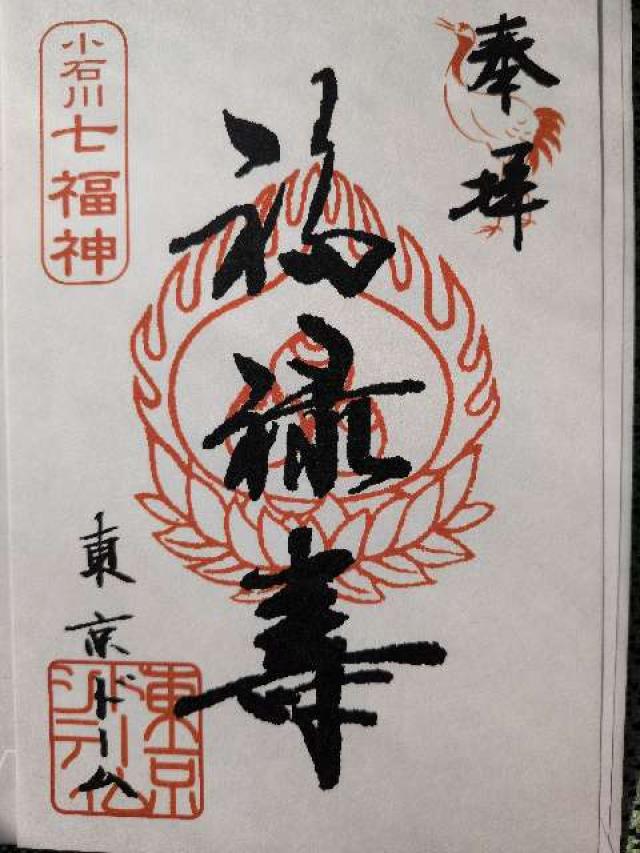 奉拝
福禄寿
小石川七福神
東京ドーム
東京